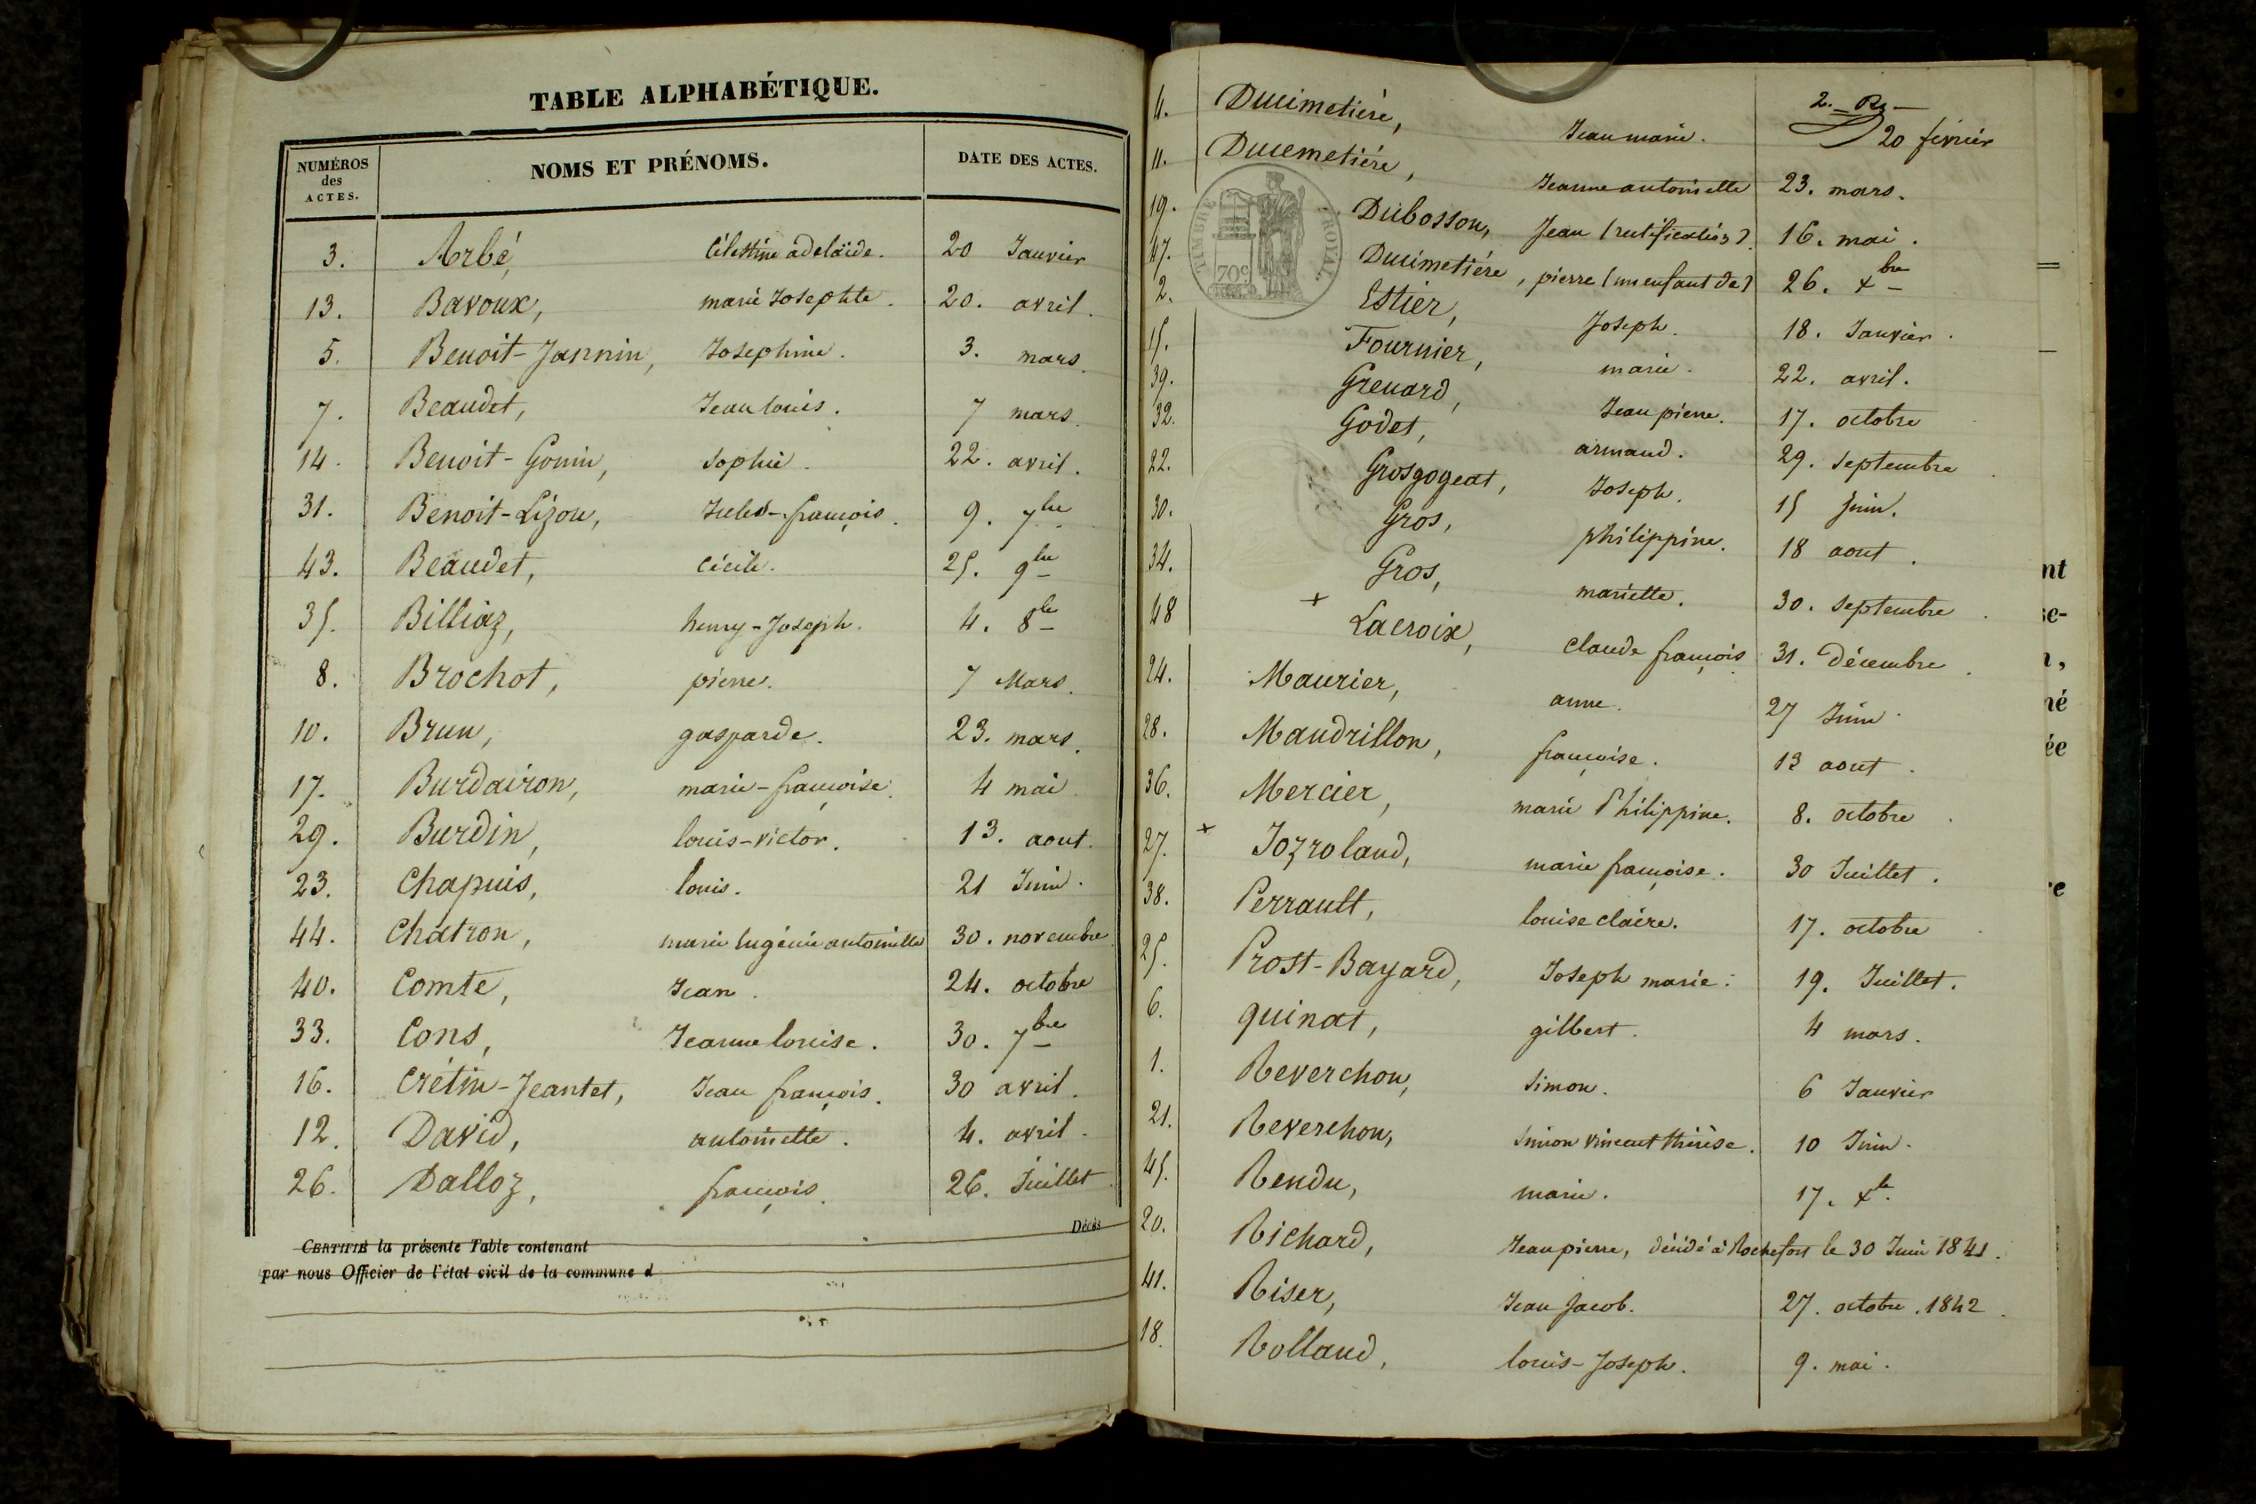 TABLE ALPHABÉTIQUE.
NUMÉROS des ACTES. NOMS ET PRÉNOMS. DATE DES ACTES.
3. Arbé, Célestine adelaïde. 20 Janvier
13. Bavoux, marie Josephte. 20. avril.
5. Benoit-Jannin, Josephine. 3. mars.
7. Beaudet, Jean louis. 7 mars.
14. Benoit-Gonin, sophie. 22. avril.
31. Benoit-Lizon, Jules-françois. 9. 7bre
43. Beaudet, cécile. 25. 9bre
35. Billiaz, henry-Joseph. 4. 8bre
8. Brochot, pierre. 7 Mars.
10. Brun, gasparde. 23. mars.
17. Burdairon, marie-françoise. 4 mai
29. Burdin, louis-victor. 13. aout.
23. Chapuis, louis. 21 Juin.
44. Chatron, marie Eugénie antoinette 30. novembre
40. Comte, Jean. 24. octobre
33. Cons, Jeanne louise. 30. 7bre
16. Crétin-Jeantet, Jean françois. 30 avril.
12. David, antoinette. 4. avril.
26. Dalloz, françois. 26. Juillet
Décès
CERTIFIÉ la présente Table contenant
par nous Officier de l'état civil de la commune d
2.
4. Ducimetière, Jean marie. 20 février
11. Ducemetiére, Jeanne antoinette 23. mars.
TIMBRE ROYAL.
70c
19. Dubosson, Jean (rectification). 16. mai.
47. Ducimetiére, pierre (un enfant de) 26. xbre
2. Estier, Joseph. 18. Janvier.
15. Fournier, marie. 22. avril.
39. Grenard, Jean pierre. 17. octobre
32. Godet, armand. 29. septembre
22. Grosgogeat, Joseph. 15 juin.
30. Gros, philippine. 18 aout.
34. Gros, mariette. 30. septembre.
48 + Lacroix, claude françois 31. Décembre.
24. Maurier, anne. 27 Juin.
28. Mandrillon, françoise. 13 aout.
36. Mercier, marie Philippine. 8. octobre.
27. + Jozroland, marie françoise. 30 Juillet.
38. Perrault, louise claire. 17. octobre
25. Prost-Bayard, Joseph marie. 19. Juillet.
6. quinat, gilbert. 4 mars.
1. Reverchon, simon. 6 Janvier
21. Reverchon, simon vincent thérèse. 10 Juin.
45. Rendu, marie. 17. xbre
20. Richard, Jean pierre, décédé à Rochefort le 30 Juin 1841.
41. Riser, Jean Jacob. 27. octobre. 1842.
18. Rolland, louis-Joseph. 9. mai.
nt
se-
n,
né
ée
re